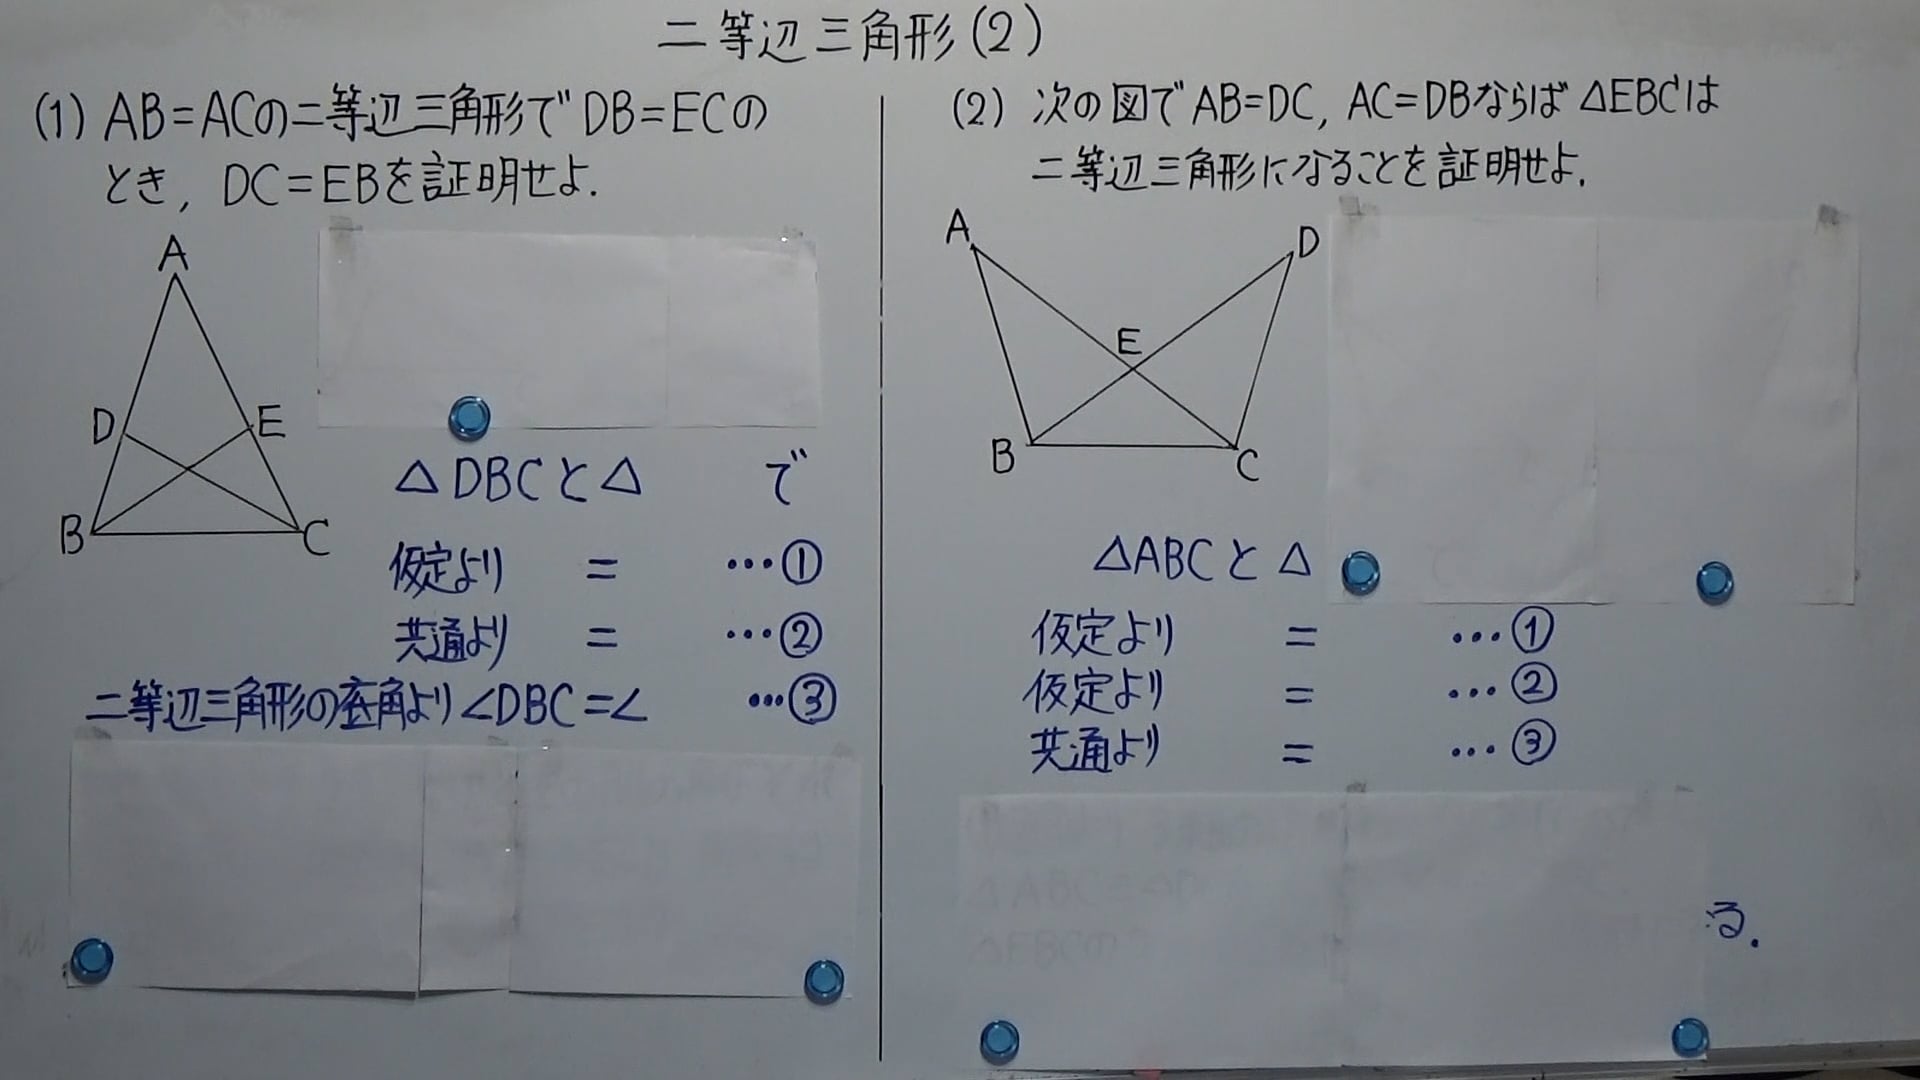 二等辺三角形(2)
(1) AB=ACの二等辺三角形でDB=ECの
とき, DC=EBを証明せよ.
A
D
E
B
C
△DBCと△ で
仮定より = …①
共通より = …②
二等辺三角形の底角より∠DBC=∠ …③
(2) 次の図でAB=DC, AC=DBならば△EBCは
二等辺三角形になることを証明せよ.
A
D
E
B
C
△ABCと△
仮定より = …①
仮定より = …②
共通より = …③
る.